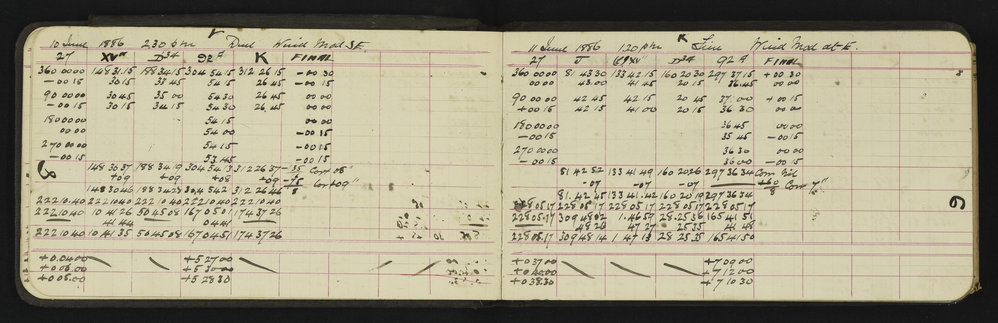 10 June 1886 230 pm Dull Wind Mod SE.
27 XV" D3A 92A K FINAL
360 00 00 148 31.15 188 34 15 304 54 15 312 26 15 - 00 30
- 00 15 30 15 33 45 54 15 26 45 - 00 15
90 00 00 30 45 35 00 54 30 26 45 00 00
- 00 15 30 15 34 15 54 30 26 45 00 00
180 00 00 54 15 00 00
00 00 54 00 - 00 15
270 00 00 54 15 - 00 15
- 00 15 53 45 - 00 15
148 30 37 188 34 19 304 54 13 312 26 37
+09 +09 +08 +09 Corr 09"
148 30 46 188 34 28 304 54 2 312 26 46
222 10 40 222 10 40 222 10 40 222 10 40 222 10 40
222 10 40 10 41 26 50 45 08 167 05 01 174 37 26
41 41 04 41
222 10 40 10 41 35 50 45 08 167 04 51 174 37 26
+0.04 00 +5 27 00
+0 06.00 +5 30 00
+0 05.00 +5 28 30
11 June 1886 1 20 pm K Fine Wind Mod ab E.
27 J XV" D3A 92A FINAL
360 00 00 81 43 30 133 42 15 160 20 30 297 37 15 + 00 30
00 00 43.00 41 45 20 15 36 45 00 00
90 00 00 42 45 42 15 20 45 37 00 + 00 15
+ 00 15 42 15 41 00 20 15 36 30 00 00
180 00 00 36 45 00 00
- 00 15 35 45 - 00 15
270 00 00 36 30 00 00
- 00 15 36 00 - 00 15
81 42 52 133 41 49 160 20 26 297 36 34 Corr Nil
-07 -07 -07
81. 42 45 133 41. 42 160 20 19 297 36 34
228 05 17 228 05 17 228 05 17 228 05 17 228 05 17
228 05.17 309 48 02 1.46 59 28 25 36 165 41 51
48 26 47 27 25 35 41 48
228 05.17 309 48 14 1 47 13 28 25 35 165 41 50
+0 37 00 +7 09 00
+0 40 00 +7 12 00
+0 38.30 +7 10 30